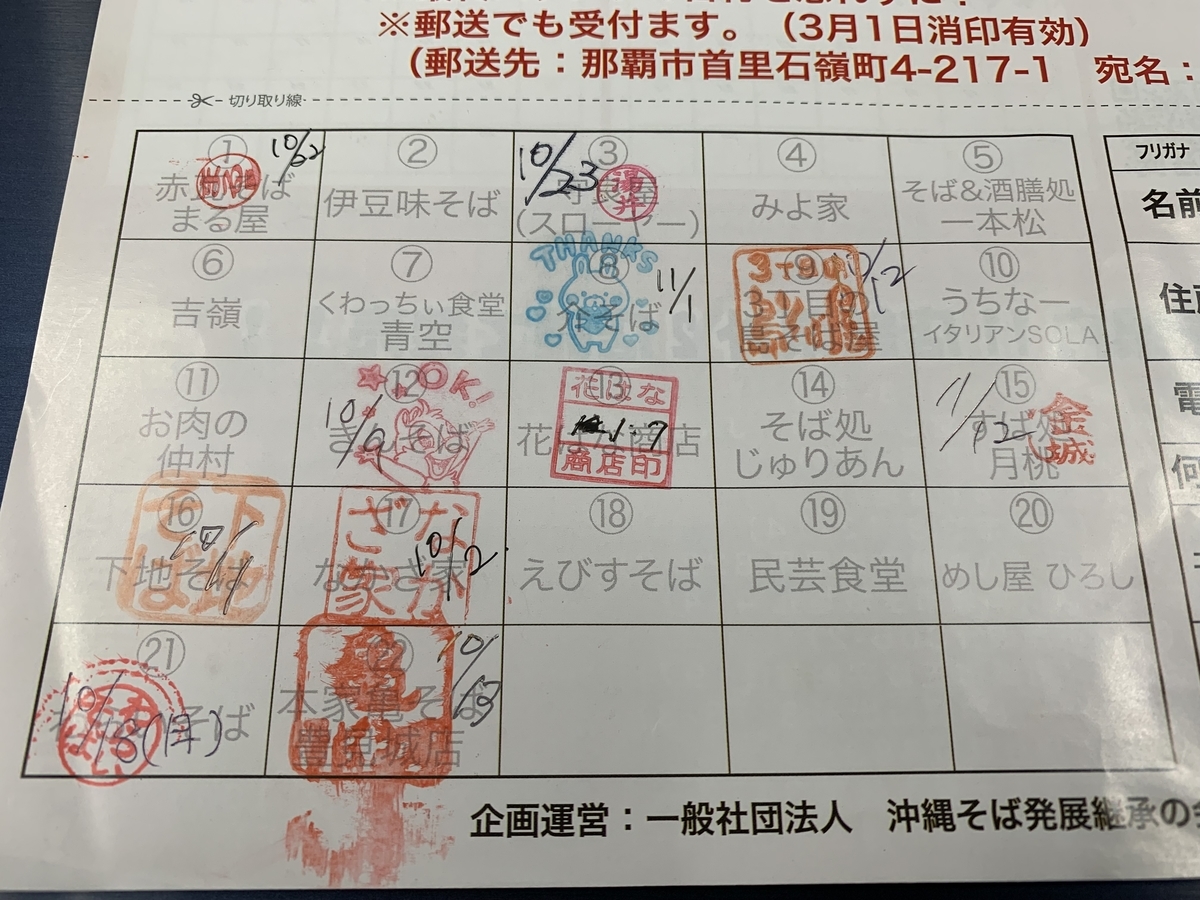 ※郵送でも受付ます。（3月1日消印有効）
（郵送先：那覇市首里石嶺町4-217-1　宛名：
切り取り線
① 10/22
まる屋
②
伊豆味そば
③ 10/23
湯井
(スローヤー)
④
みよ家
⑤
そば&酒膳処
一本松
フリガナ
名前
⑥
吉嶺
⑦
くわっちぃ食堂
青空
THANKS
⑧ 11/1
そば
⑨ 10/2
3丁目の
島そば屋
⑩
うちなー
イタリアンSOLA
⑪
お肉の
仲村
OK!
⑫ 10/9
そば
⑬
花はな
花はな商店
1.7
商店印
⑭
そば処
じゅりあん
⑮ 11/12
すば処
月桃
金城
⑯
下地そば
⑰ 10/2
なかざ家
⑱
えびすそば
⑲
民芸食堂
⑳
めし屋 ひろし
㉑
そば
(月)
㉒ 10/13
本家亀そば
豊見城店
企画運営：一般社団法人　沖縄そば発展継承の